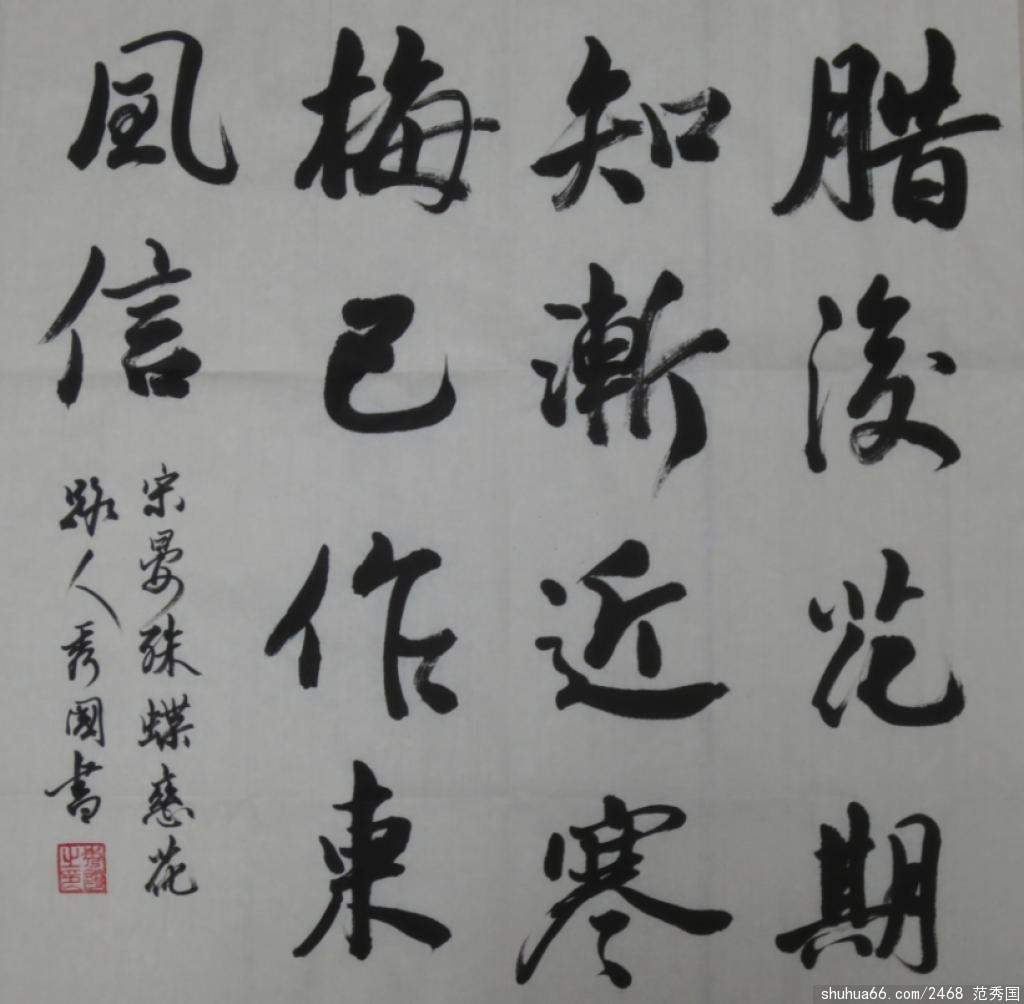 腊後花期
知漸近寒
梅已作東
風信
宋晏殊蝶恋花
路人秀國書
shuhua66.com/2468 范秀国